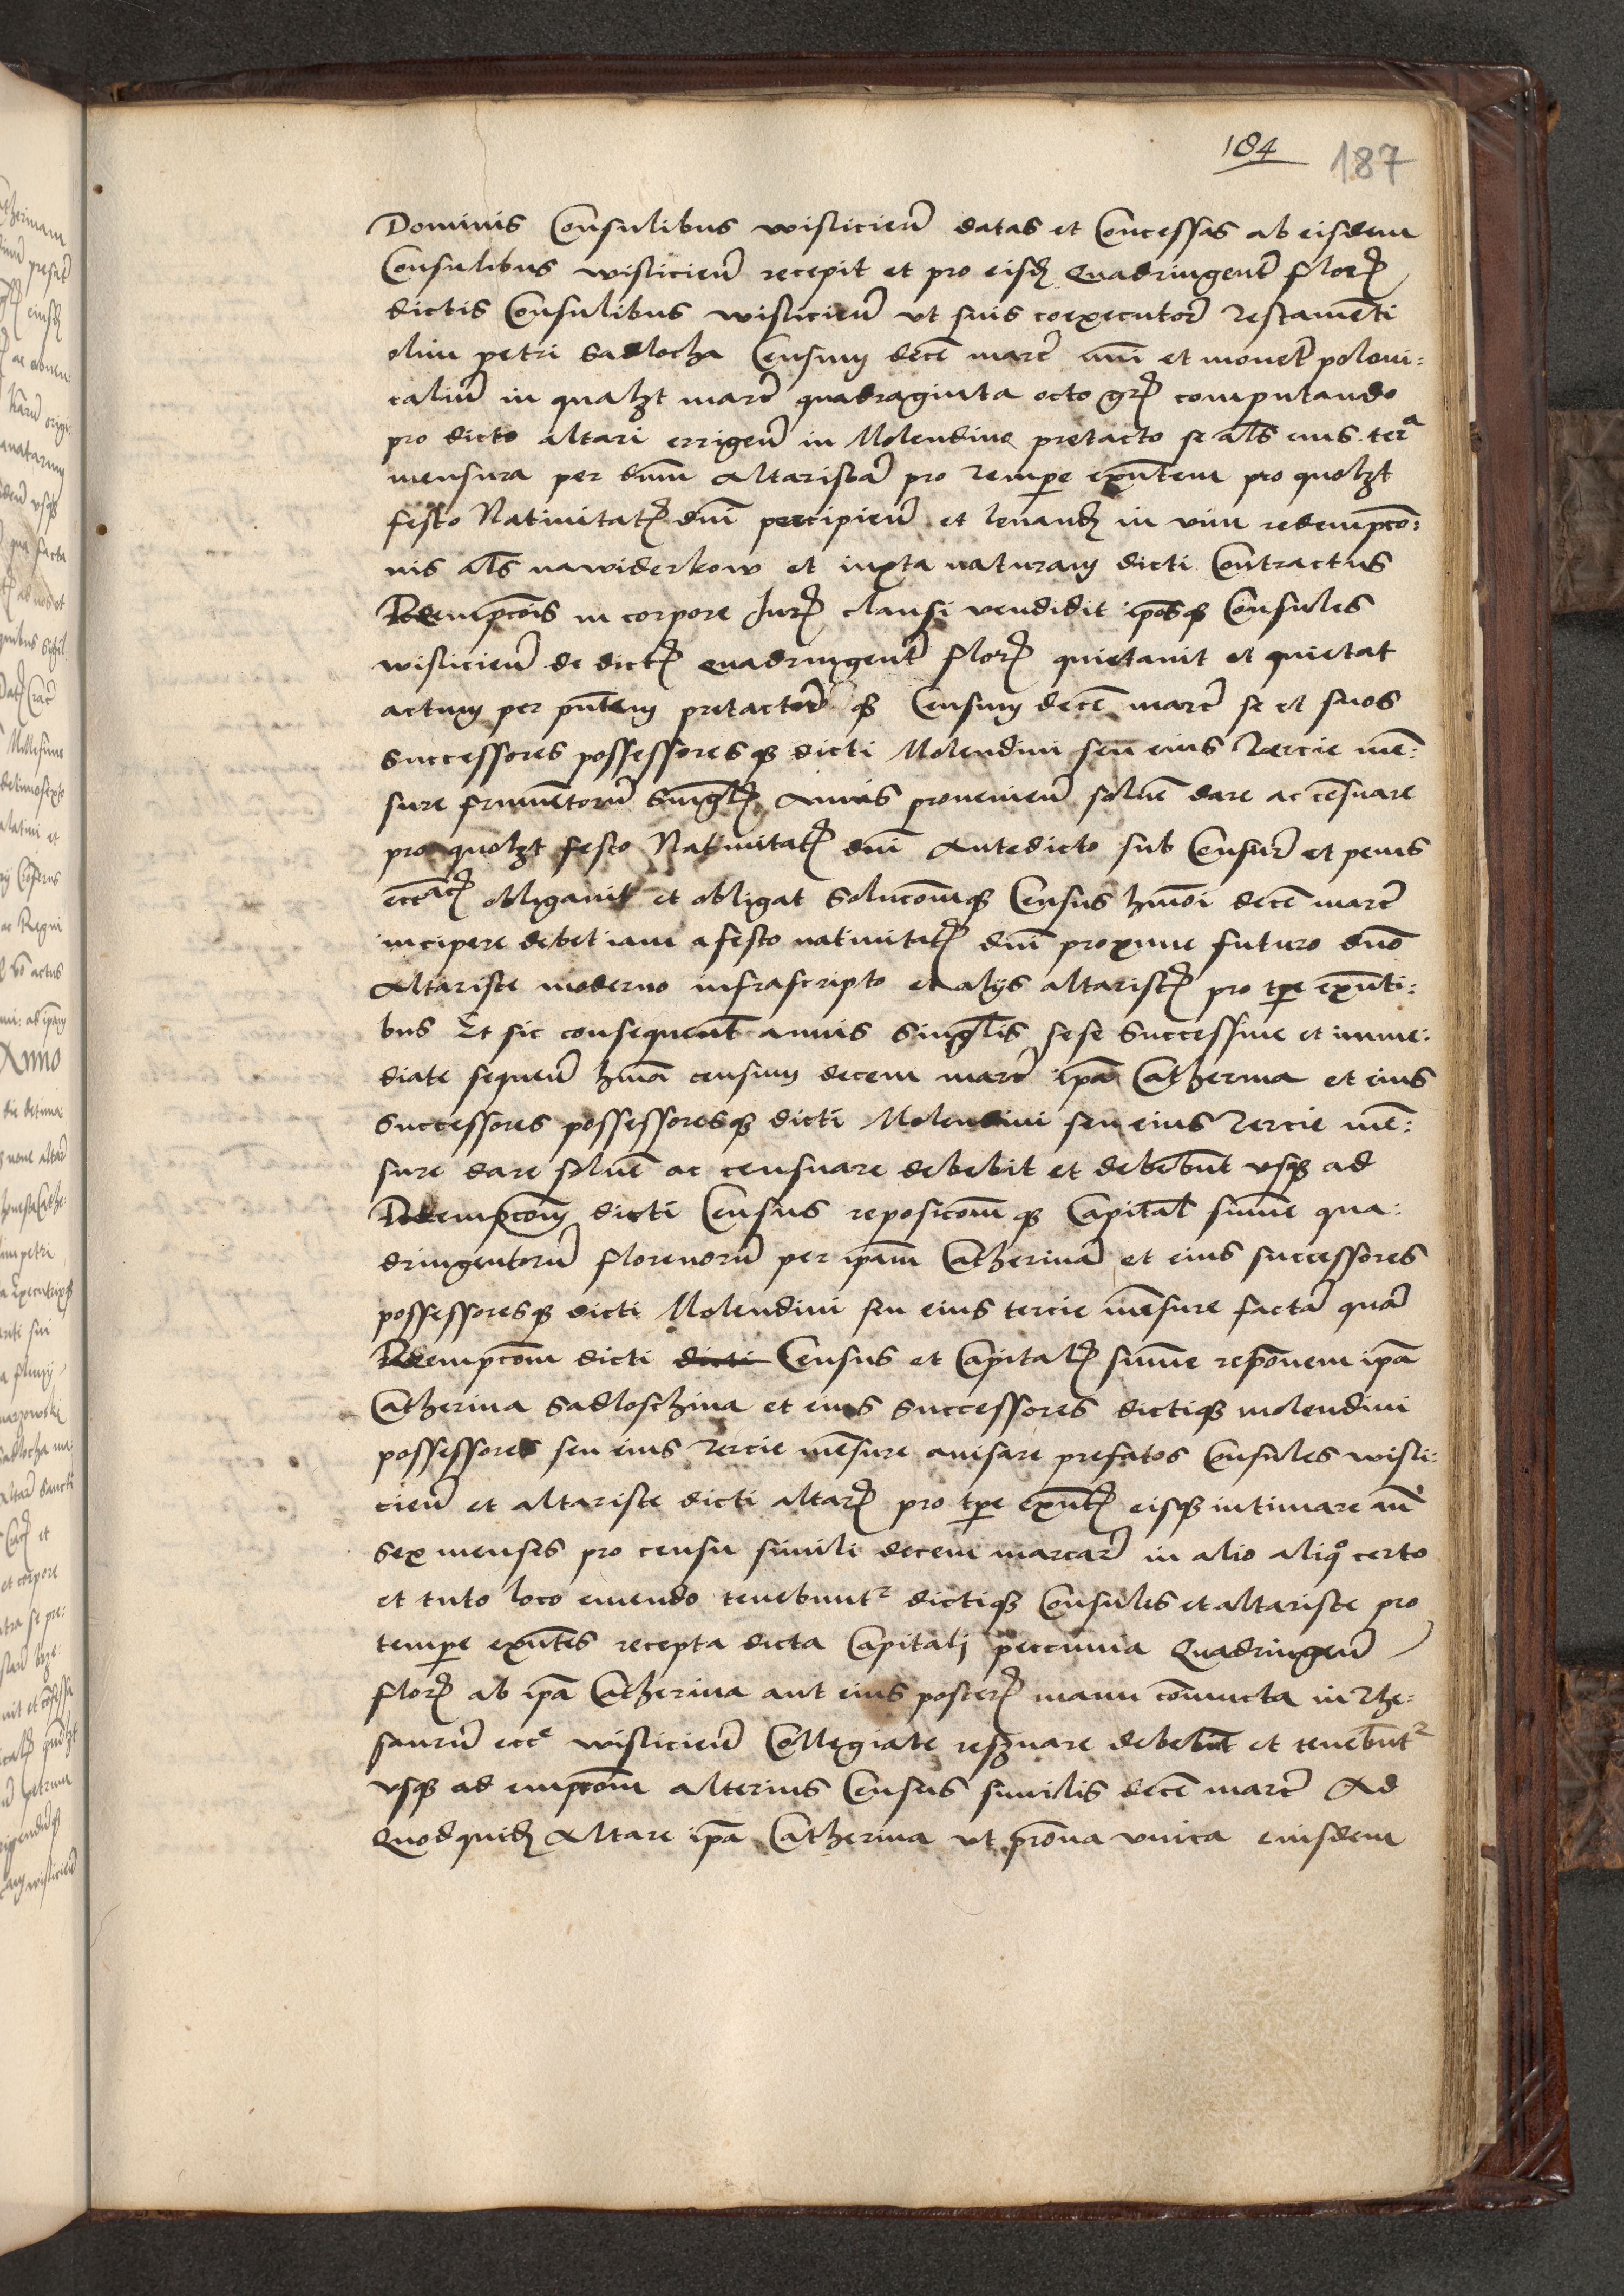 184 187
Dominis Consulibus wislicien̄ datas et Concessas ab eisdem
Consulibus wislicien̄ recepit et pro eisd Quadringent̄ flor
dictis Consulibus wislicien̄ vt suis coexecutor̄ Testamēti
olim petri Sadlocha Censum decē marc̄ nūi et monet̄ poloni:
caliū in qualzt marc̄ quadraginta octo gr computando
pro dicto altari errigen̄ in Molendino pretacto se als eius terᵃ
mensura per dnm̄ Altaristā pro tempe exn̄tem pro quolzt
festo Natiuitat dnī percipien̄ et leuand in vim redempcō:
nis als nawiderkow et iuxta naturam dicti Contractus
Redempcōis in corpore Jur clausi vendidit ip̄osq Consules
wislicien̄ de dict Quadringent̄ flor quietauit et quietat
actum per pn̄tem pretactor̄ q Censum decē marc̄ se et suos
Successores possessoresq dicti Molendini seu eius Tercie mē:
sure frumētorū Singl Annis prouenien̄ soluē dare ac cēsuare
pro quolzt festo Natiuitat dnī Antedicto sub Censur̄ et penis
ecctic obligauit et obligat Solucōmq Census hmōi decē marc̄
incipere debet iam a festo natiuitat dnī proxime futuro dnō
Altariste moderno infrascripto et alijs altarist pro tpe exn̄ti:
bus Et sic consequent̄ annis Singlis sese Successiue et imme:
diate sequen̄ hmōi censum decem marc̄ ipā Catherina et eius
Successores possessoresq dicti Molendini seu eius Tercie mē:
sure dare soluē ac censuare debebit et debebūt vsq ad
Redempcōm dicti Census reposicōmq Capital̄ sum̄e qua:
dringentorū florenorū per ipam̄ Catherinā et eius successores
possessoresq dicti Molendini seu eius tercie mēsure factā quā
Redempcōm dicti dicti Census et Capital sum̄e repōnem ipā
Catherina Sadloschina et eius Successores dictiq molendini
possessores seu eius Tercie mēsure auisare prefatos Consules wisli:
cien̄ et altariste dicti altar pro tpe exn̄t eisq intimare an̄
Sex menses pro censu simili decem marcar̄ in alio aliqº certo
et tuto loco emendo tenebunt² dictiq Consules et altariste pro
tempe exn̄tes recepta dicta Capitali peccunia Quadringen̄
flor ab ipā Catherina aut eius poster manu cōiuncta in The:
saurū eccᵉ wislicien̄ Collegiate reszuare debebūt et tenebūt²
vsq ad empcōm alterius Census similis decē marc̄ Ad
Quodquid Altare ipā Catherina vt prōna vnica eiusdem